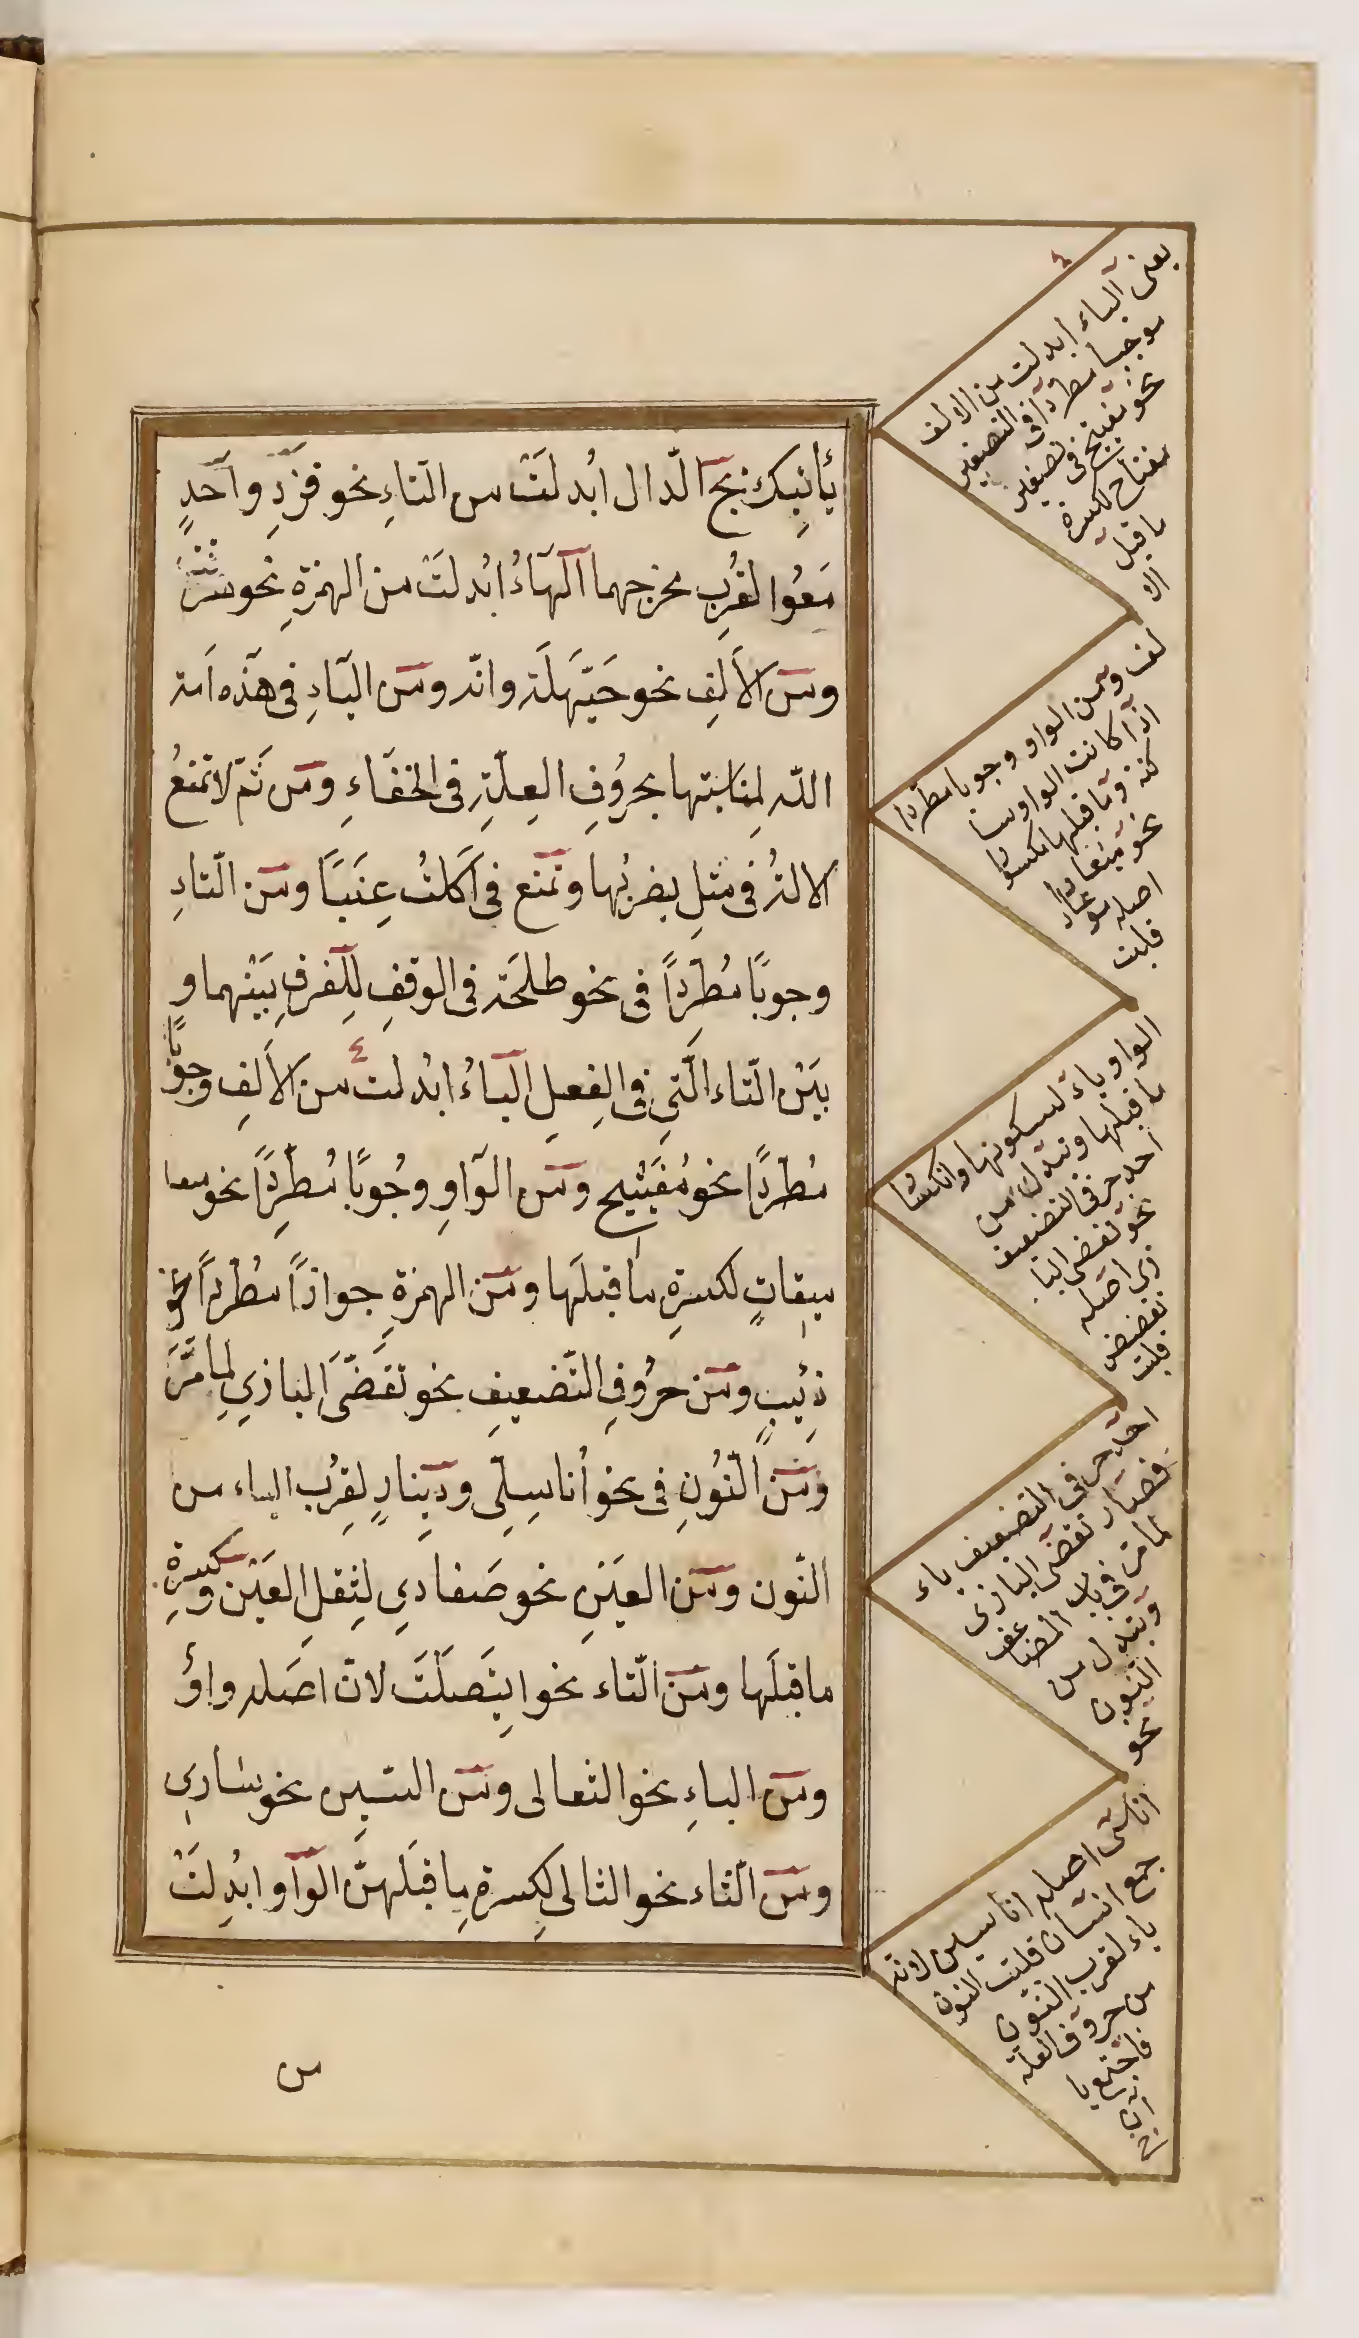 يأتيك بج الدال ابدلت من التاء نحو فزد واجد
معوا لقرب مخرجهما الهاء ابدلت من الهمزة نحو
ومن الألف نحو حيهله وانه ومن الياء في هذه امة
الله لمناسبتها بحروف العلة في الخفاء ومن ثم لا تمنع
الامالة في مثل يضربها وتمنع في اكلت عنبا ومن التاء
وجوبا مطردا في نحو طلحه في الوقف للفرق بينهما و
بين التاء التي في الفعل الياء ابدلت من الألف وجوبا
مطردا نحو مفيتيح ومن الواو وجوبا مطردا نحو
ميقات لكسرة ما قبلها ومن الهمزة جوازا مطردا نحو
ذيب ومن حروف التضعيف نحو تقضى البازي لما مر
ومن النون في نحو أناسي ودينار لقرب الياء من
النون ومن العين نحو ضفادي لثقل العين وكسرة
ما قبلها ومن التاء نحو ايتصلت لان اصله واو
ومن الباء نحو الثعالى ومن السين نحو سادي
ومن الثاء نحو الثالى لكسرة ما قبلهن الواو ابدلت
من
٤
يعنى الياء ابدلت من الالف
موجبا مطردا في التصغير
نحو مفيتيح في تصغير
مفتاح لكسرة
ما قبل
الا
لف ومن الواو وجوبا مطردا
اذا كانت الواو سا
كنة وما قبلها مكسورا
نحو ميعاد
اصله موعاد
قلبت
الواو ياء لسكونها وانكسار
ما قبلها وتبدل من
احد حرفي التضعيف
نحو تقضى البا
زى اصله
تقضض
قلبت
احد حرفى التضعيف ياء
فصار تقضى البازى
لما مر في باب المضاعف
وتبدل من
النون
نحو
اناسى اصله اناسين لانه
جمع انسان قلبت النون
ياء لقرب النون
من حروف العلة
فاجتمع يا
آن